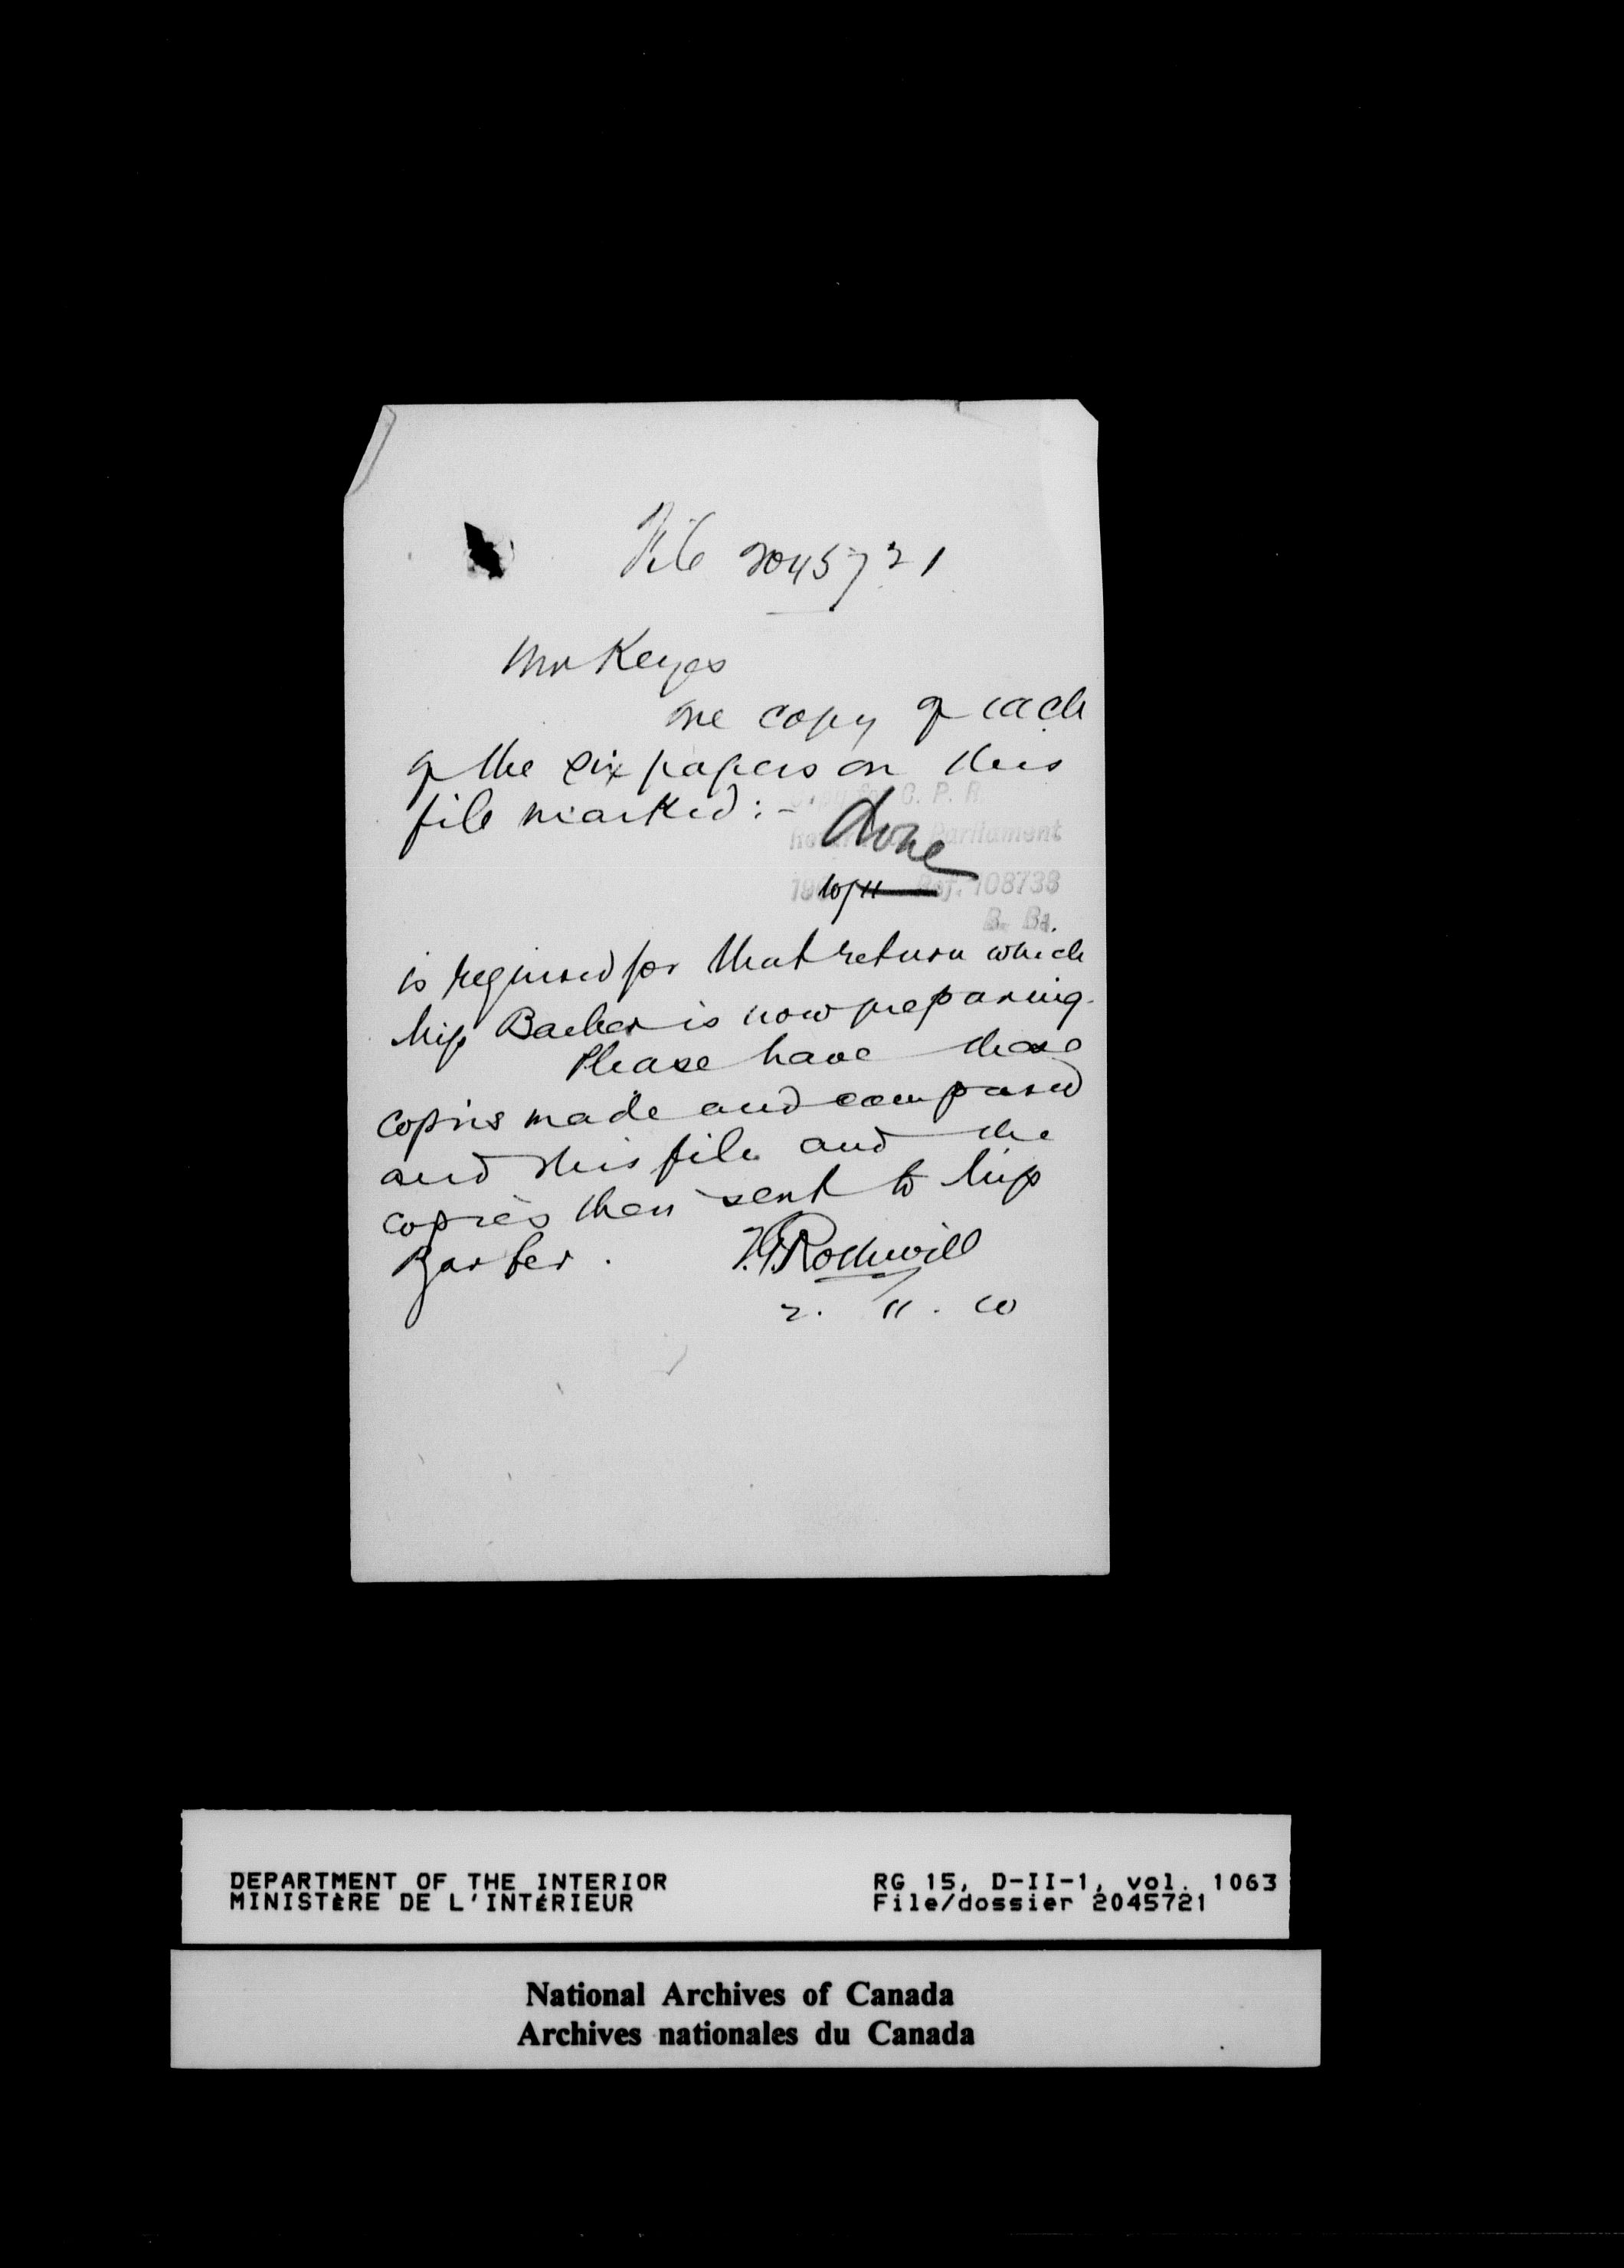 File 2045721
Mr Keyes
One copy of each
of the six papers on this
file marked:-
Copy for C. P. R.
Parliament
Done
10/11
Ref. 108738
B. Ba.
is required for that return which
Miss Barber is now preparing.
Please have these
copies made and compared
and this file and the
copies then sent to Miss
Barber.
Rothwell
2. 11. 10
DEPARTMENT OF THE INTERIOR
MINISTÈRE DE L'INTÉRIEUR
RG 15, D-II-1, vol. 1063
File/dossier 2045721
National Archives of Canada
Archives nationales du Canada